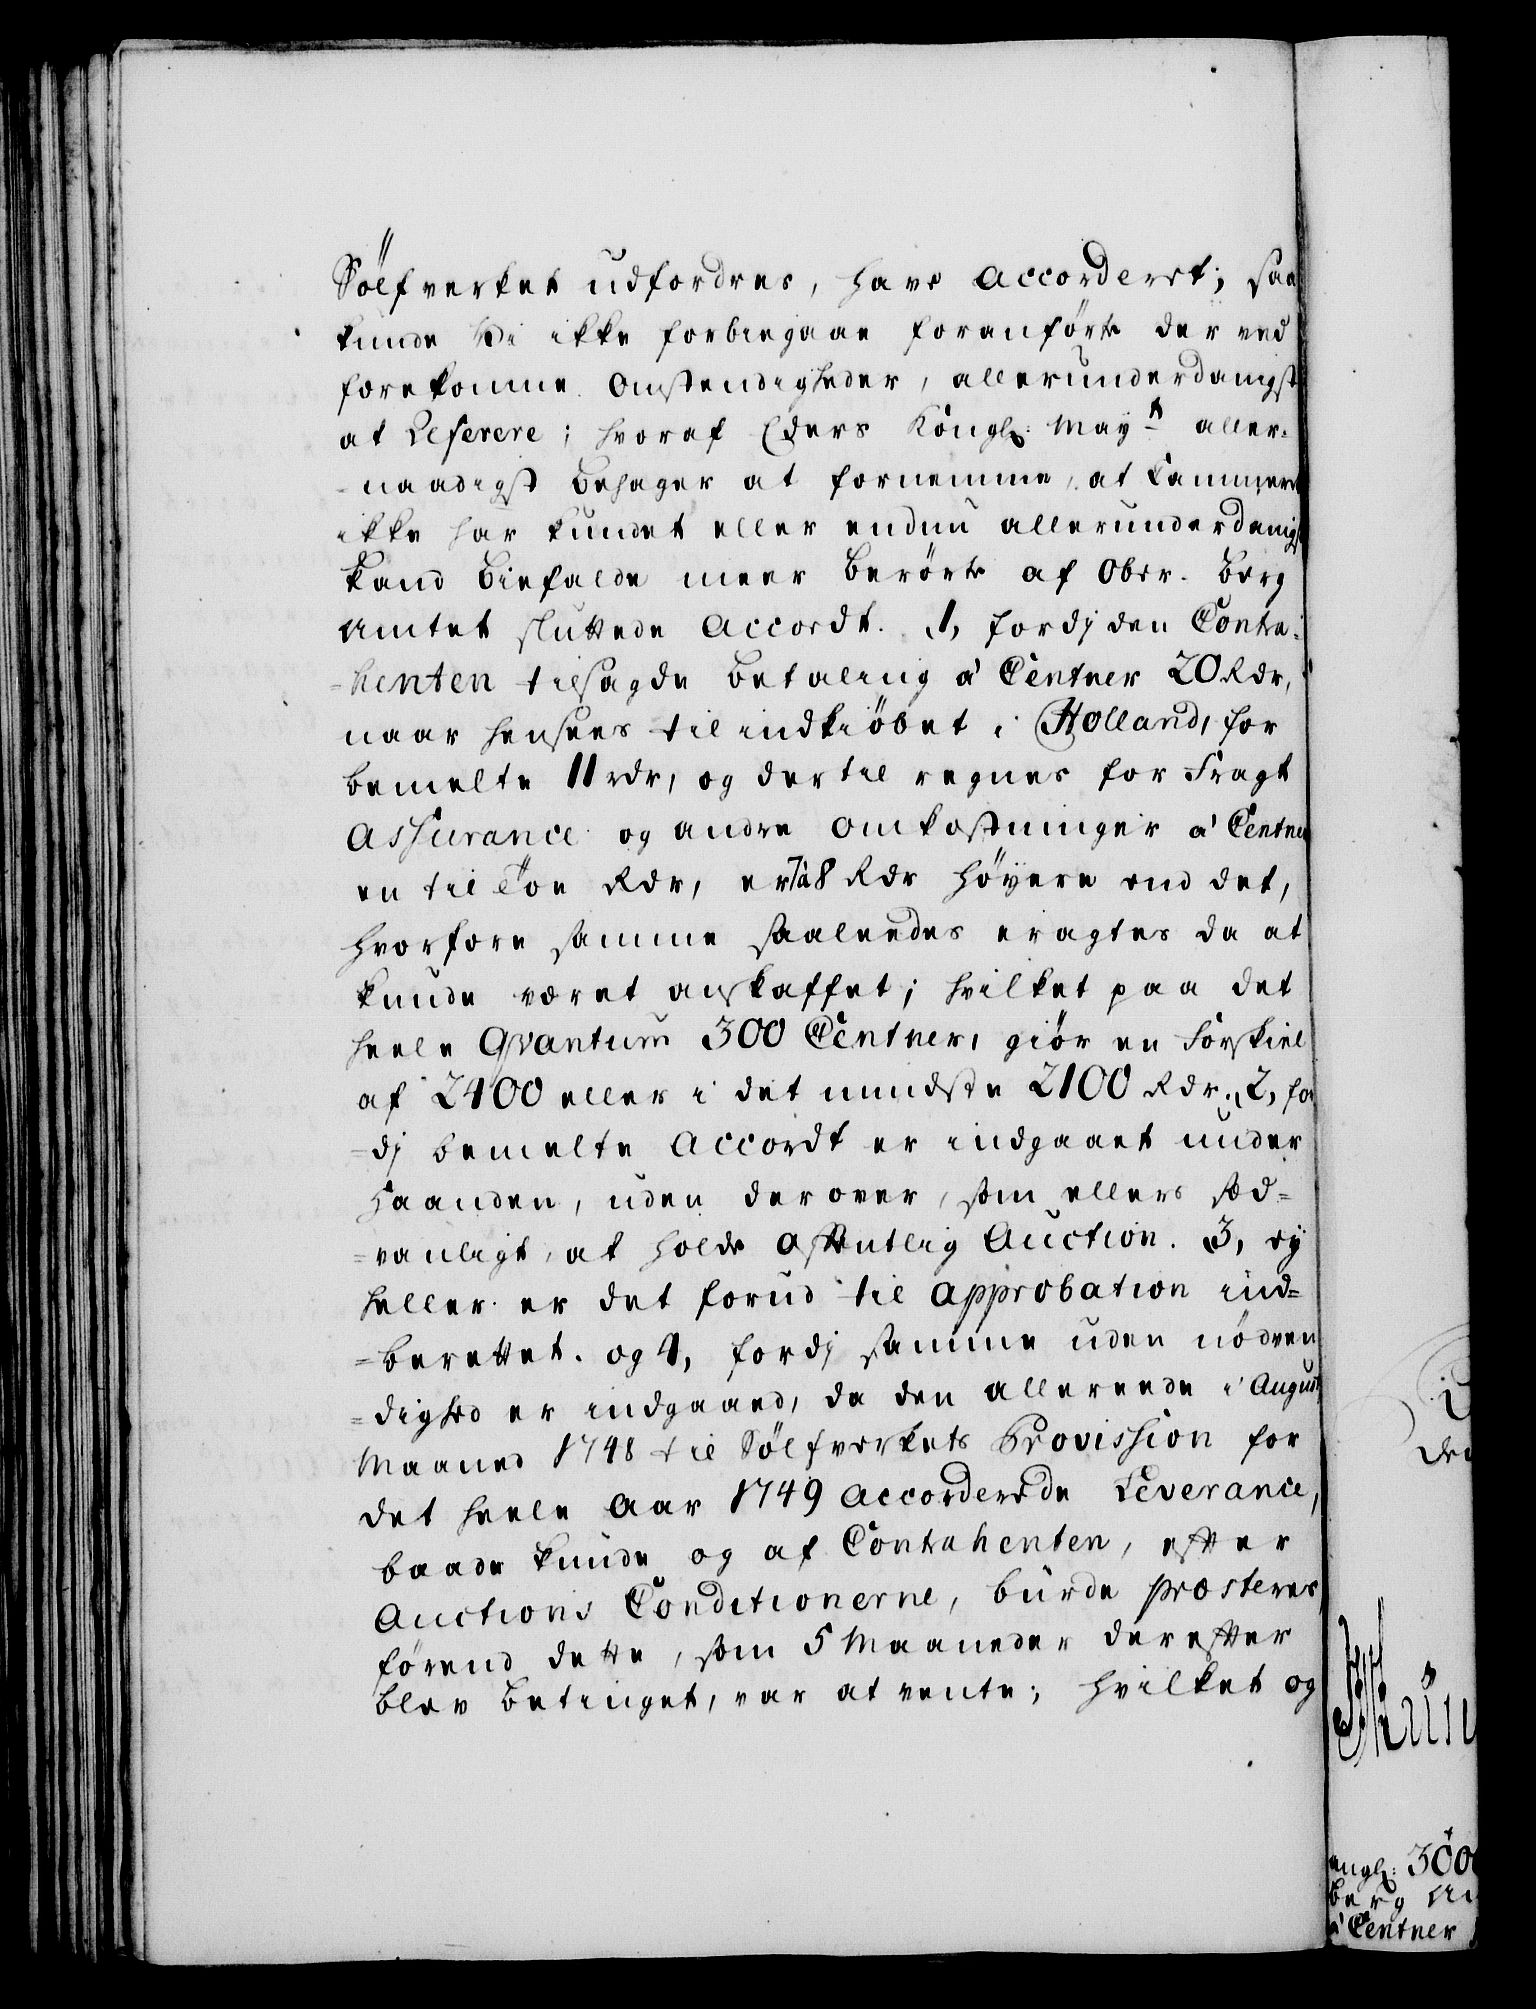 Sölfverket udfordres, have accorderet; saa
kunde Vi ikke forbiegaae foranførte der ved
forekomne Omstendigheder, allerunderdanigst
at Referere; hvoraf Eders Kongl: Mayt aller-
-naadigst behager at fornemme, at Cammeret
ikke har kundet eller endnu allerunderdanigst
kand biefalde meer berørte af Ober-Berg
Amtet sluttede Accordt. 1, fordj den Contra-
-henten tilsagde betaling á Centner 20 Rdr,
naar hensees til indkiöbet i Holland, for
bemelte 11 rdr, og dertil regnes for Fragt
Assurance og andre omkostninger á Centner
en til Toe Rdr, er 7 á 8 Rdr höyere end det,
hvorfore samme saaleedes eragtes da at
kunde været anskaffet; hvilket paa det
heele Qvantum 300 Centner, giör en Forskiel
af 2400 eller i det mindste 2100 Rdr. 2, for
-dj bemelte Accordt er indgaaet under
Haanden, uden derover, som ellers sæd=
=vanligt, at holde offentlig Auction. 3, ey
heller er det forud til Approbation ind=
=berettet. og 4, fordj samme uden nödven
=dighed er indgaaed, da den allereede i Augusti
Maaned 1748 til Sölfverkets Provission for
det heele Aar 1749 accorderede Leverance,
baade kunde og af Contrahenten, efter
Auctions Conditionerne, burde præsteres,
förend dette, som 5 Maaneder derefter
blev betinget, var at vente; hvilket og
angl: 300
Berg Am
á Centner